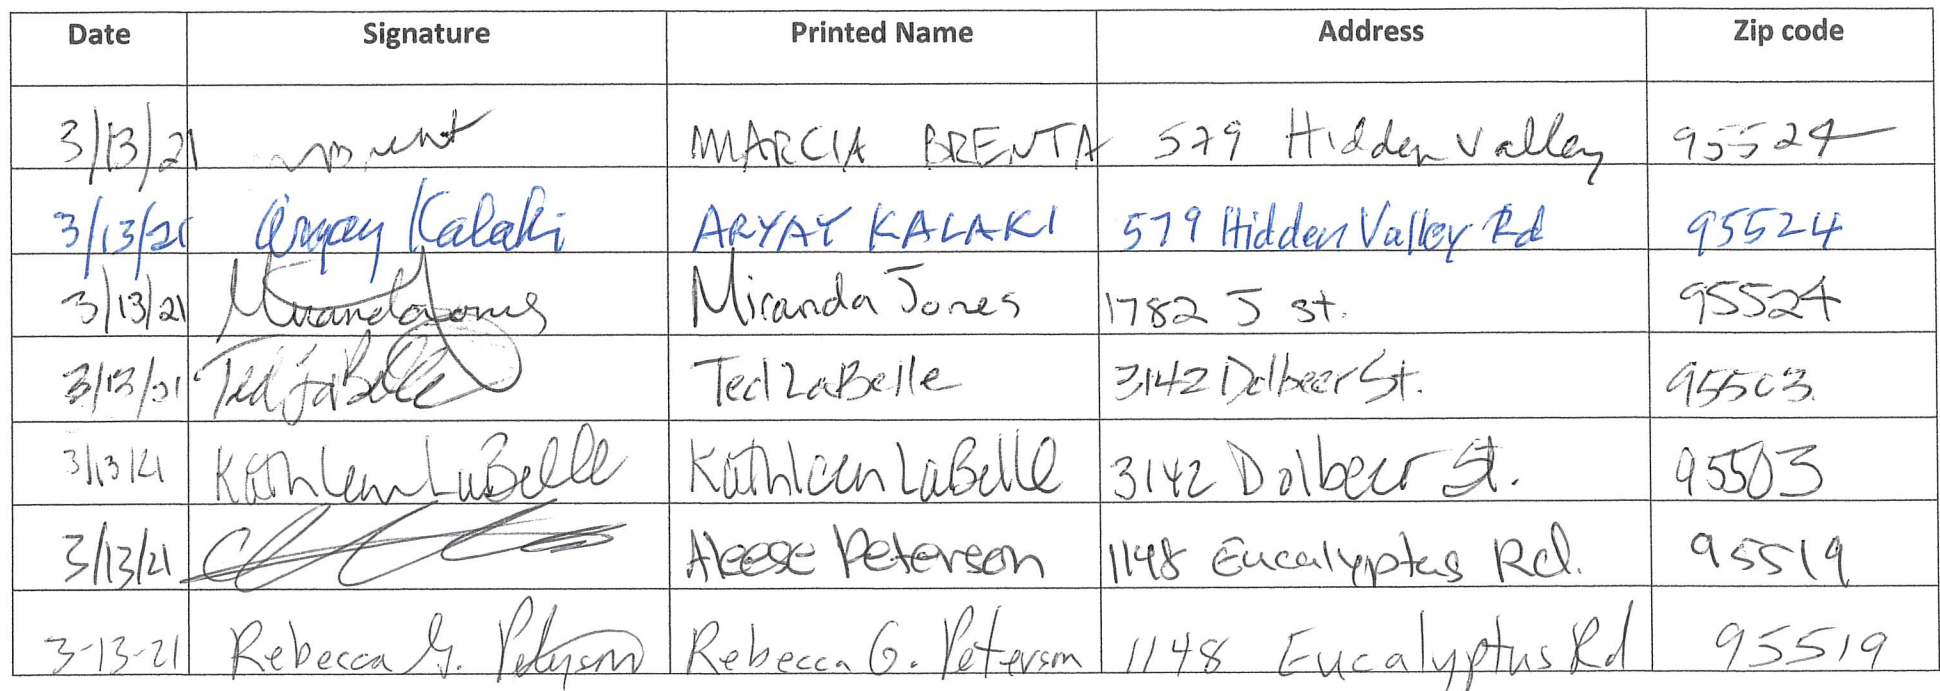 Date Signature Printed Name Address Zip code
3/13/21 MARCIA BRENTA 579 Hidden Valley 95524
3/13/21 Aryay Kalaki ARYAY KALAKI 579 Hidden Valley Rd 95524
3/13/21 Miranda Jones Miranda Jones 1782 J st. 95524
3/13/21 Ted LaBelle Ted LaBelle 3142 Dolbeer St. 95503
3/13/21 Kathleen LaBelle Kathleen LaBelle 3142 Dolbeer St. 95503
3/13/21 Aleese Peterson 1148 Eucalyptus Rd. 95519
3-13-21 Rebecca G. Peterson Rebecca G. Peterson 1148 Eucalyptus Rd 95519